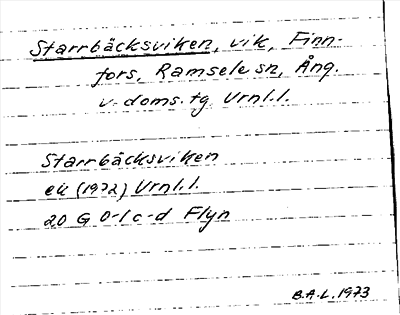 Starrbäcksviken, vik, Finn-
fors, Ramsele sn, Ång.
v. doms. tg. Vrnl.l.
Starrbäcksviken
eu (1972) Vrnl.l.
20 G 0-1 c-d Flyn
B.A.L. 1973